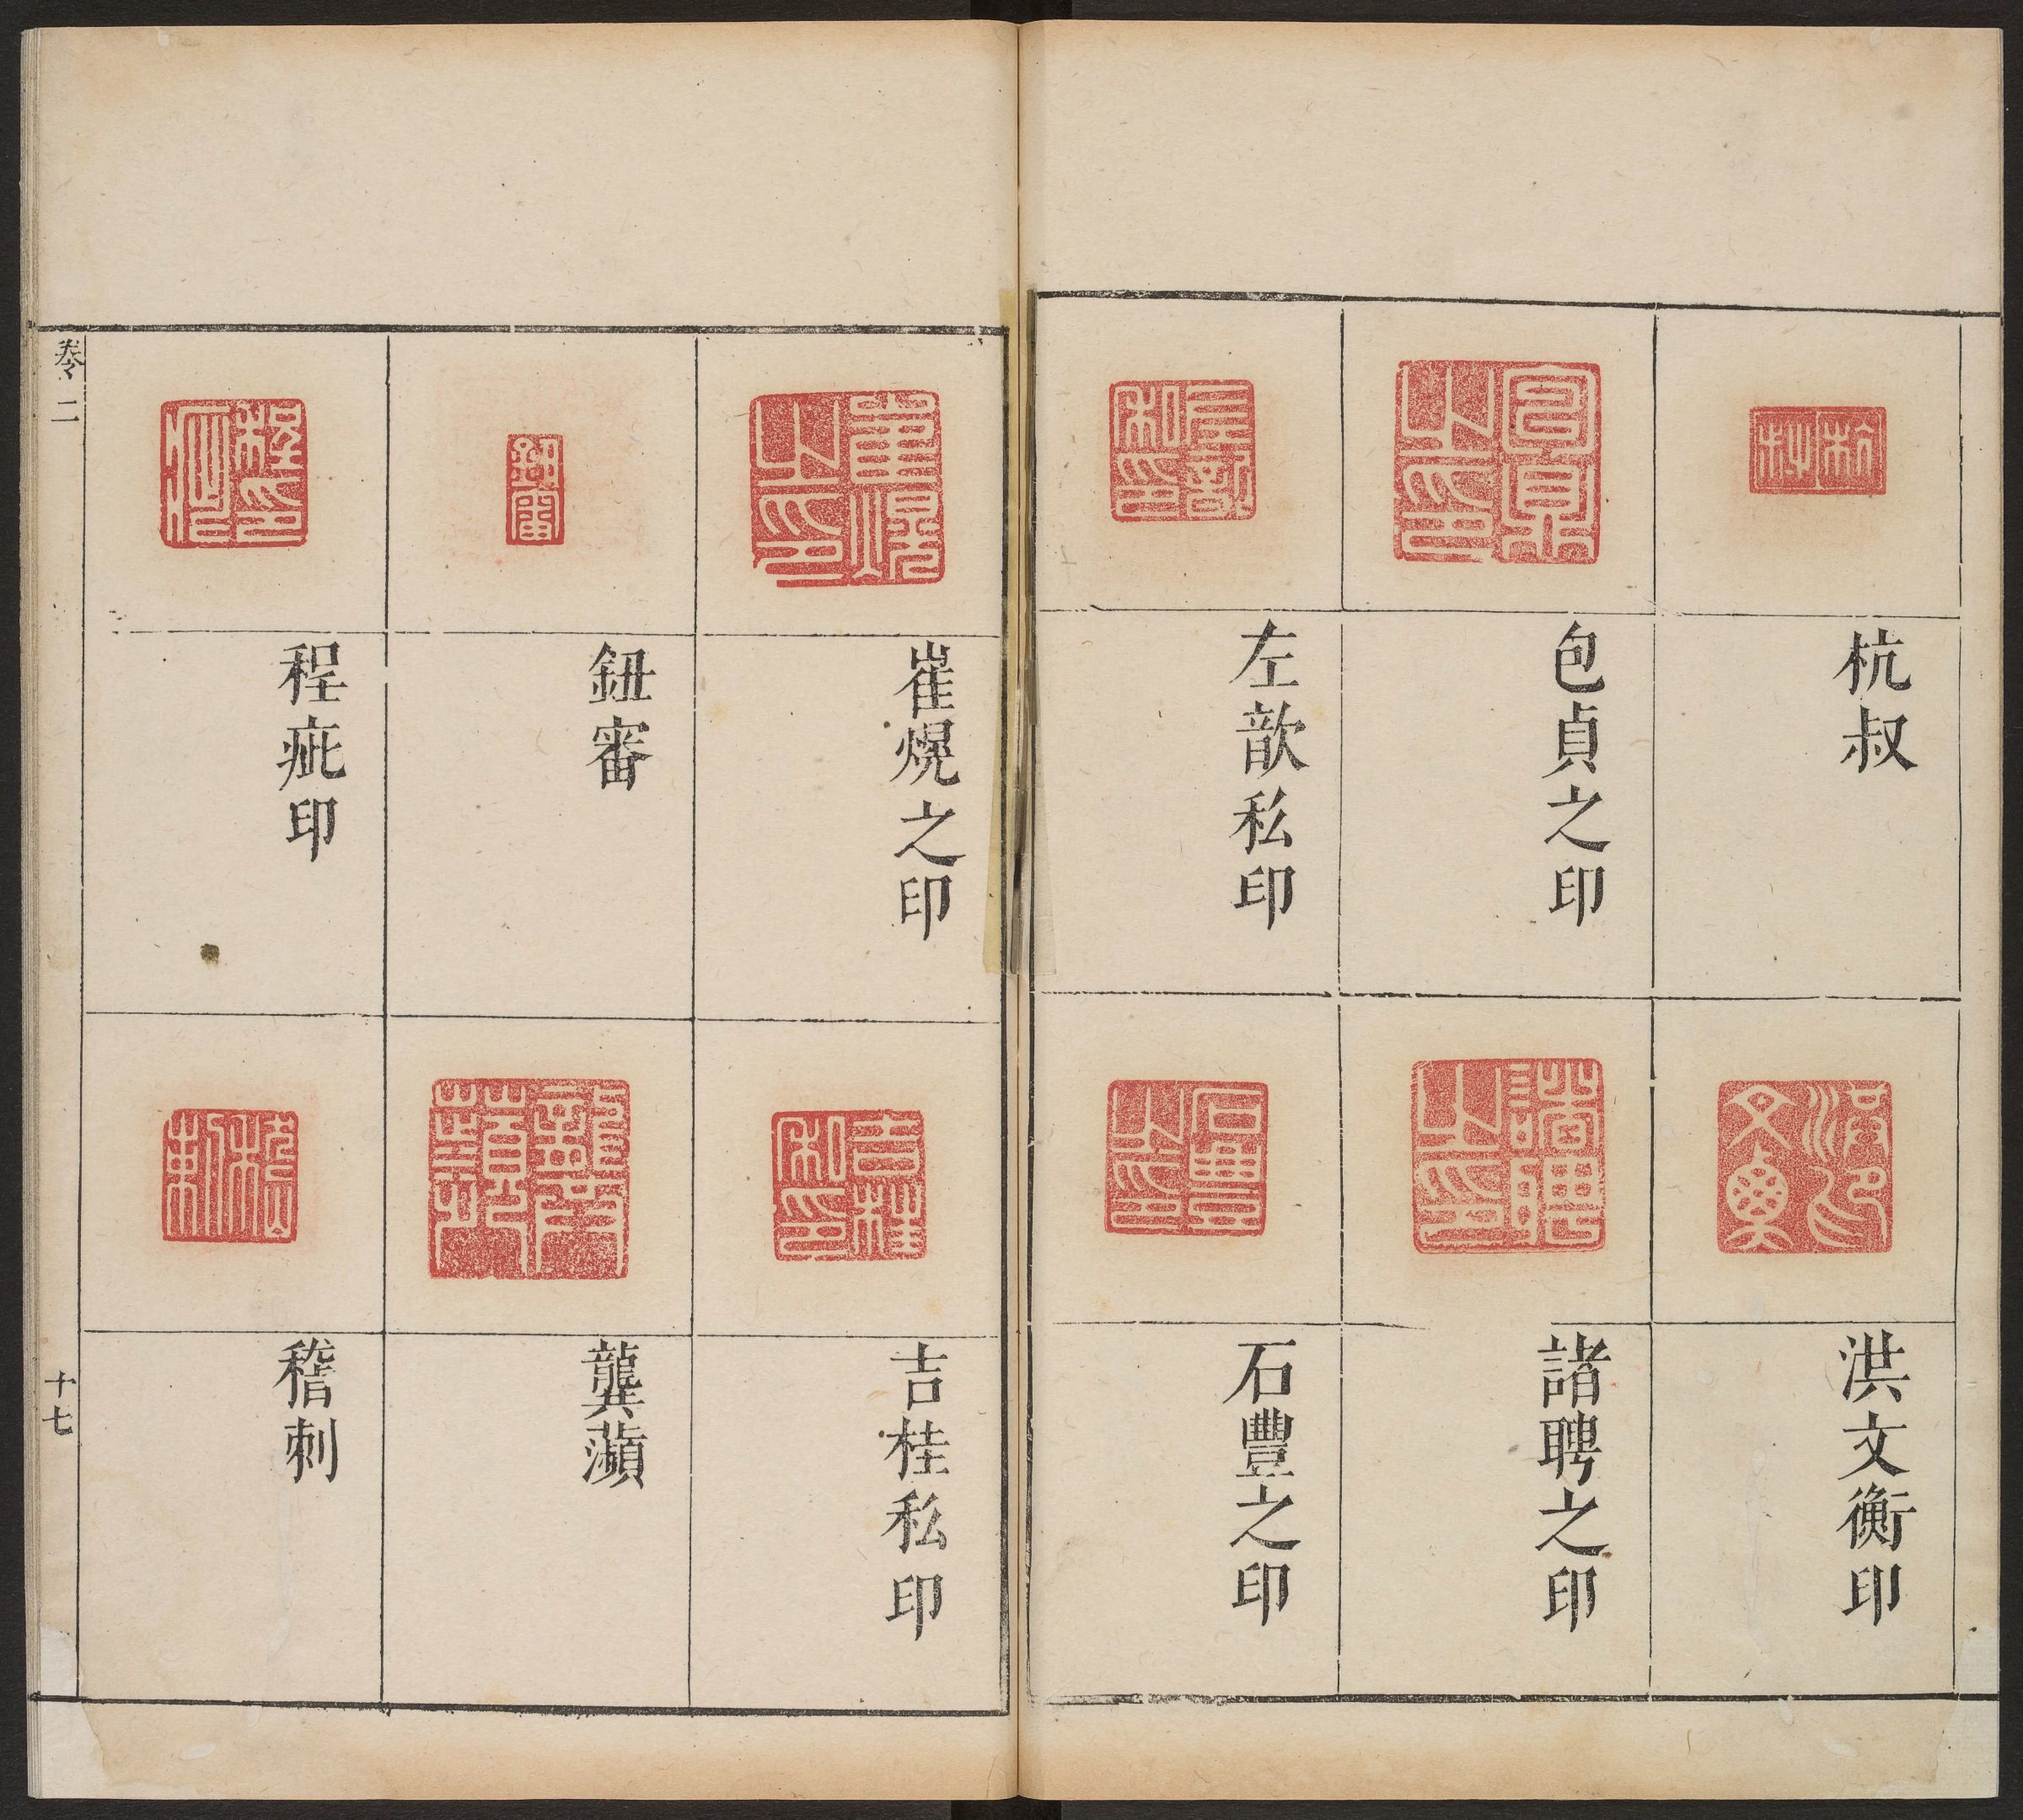 杭叔
包貞之印
左歆私印
洪文衡印
諸聘之印
石豐之印
崔熀之印
鈕審
程疵印
吉桂私印
龔蘋
稽刺
卷二
十七